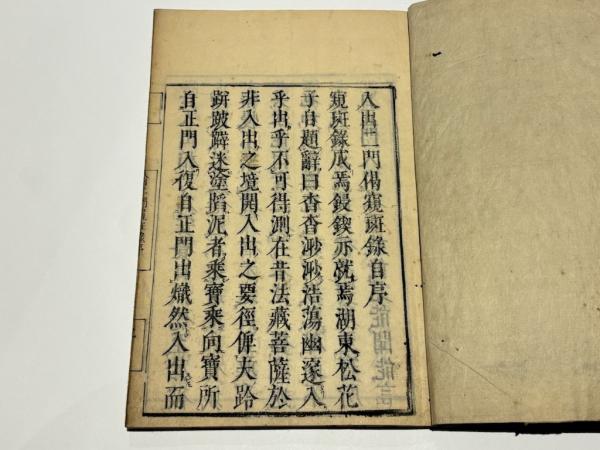 入出二門偈窺斑錄自序
窺斑錄成焉鋟鍥亦就焉湖東松花
子自題辭曰杳杳渺渺浩蕩幽邃入
乎出乎不可得測在昔法藏菩薩於
非入出之境開入出之要徑俾夫踣
跰跛躃迷塗滔泥者乘寶乘向寶所
自正門入復自正門出熾然入出而